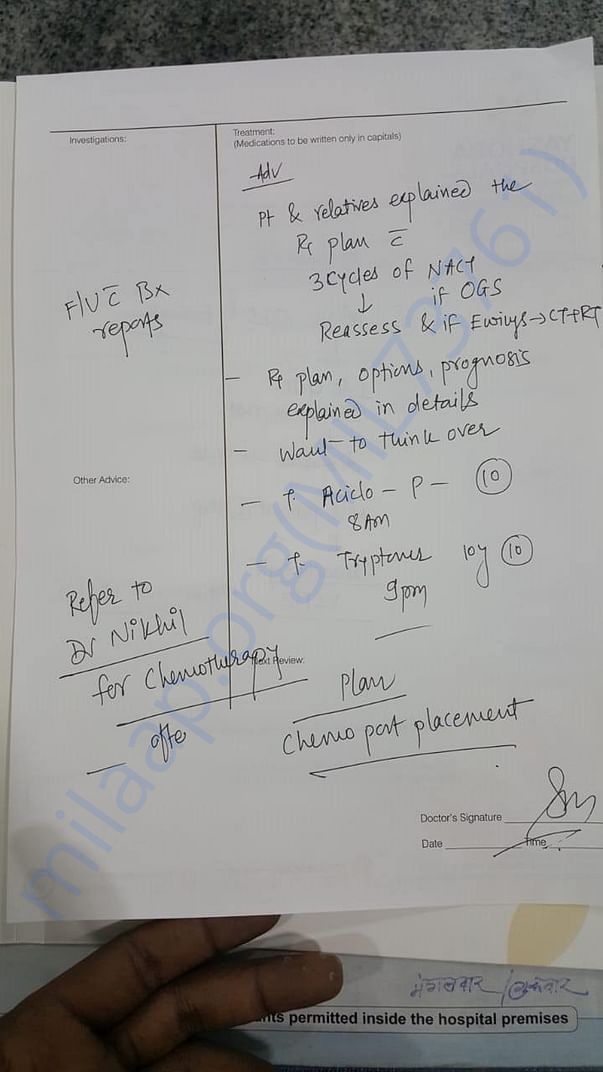 Investigations:
Treatment:
(Medications to be written only in capitals)
Adv
Pt & relatives explained the
Rx plan c̄
3 cycles of NACT
↓ if OGS
Reassess & if Ewings → CT+RT
F/U c̄ Bx
reports
— Rx plan, options, prognosis
explained in details
— Want to think over
Other Advice:
— T. Aciclo - P — 10
8 AM
— T. 10 10
9pm
Refer to
Dr Nikhil
for Chemotherapy
Next Review:
Plan
— after
Chemo port placement
Doctor's Signature
Date Time :
milaap.org(MIL73761)
मंगलवार /
permitted inside the hospital premises